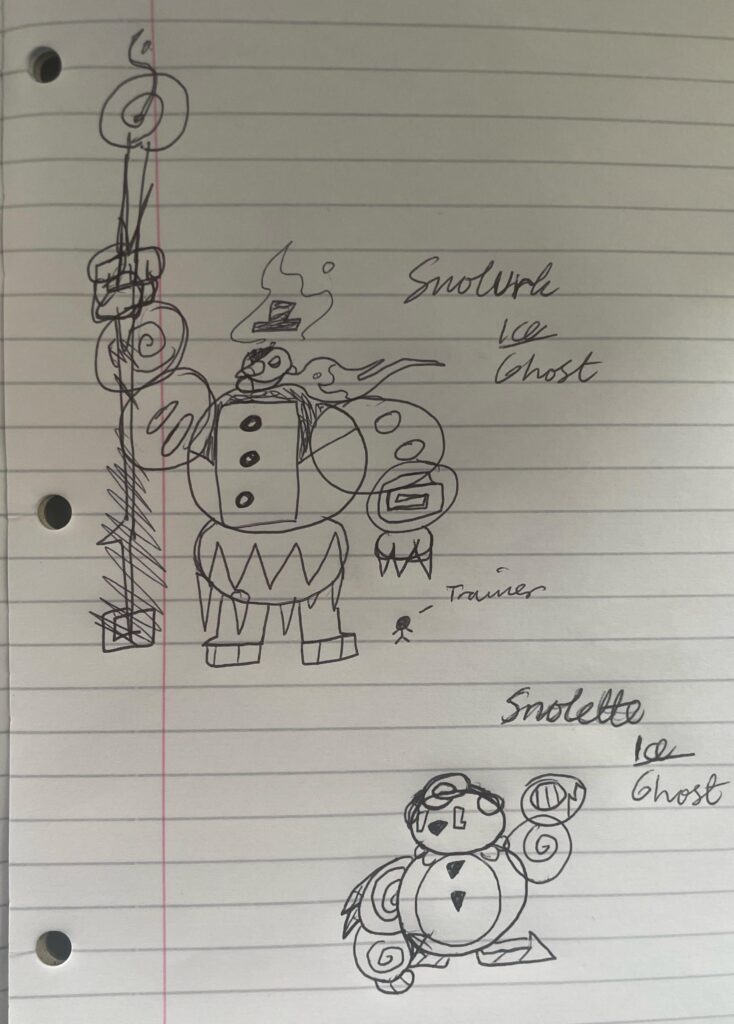 Snolurk
Ice
Ghost
Trainer
Snolette
Ice
Ghost